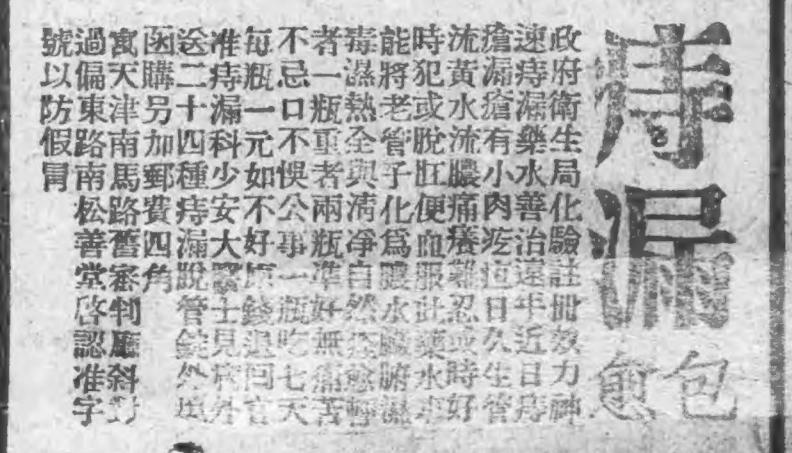 痔漏
包愈
政府衛生局化驗註冊效力神
速痔漏藥水善治遠年近日痔
瘡漏瘡有小肉疙疸日久生管
流黃水流膿痛癢難忍或時好
時犯或脫肛便血服此藥水專
能將老管子化為膿水臟腑濕
毒濕熱全與清凈自然痊愈輕
者一瓶重者兩瓶準好無痛苦
不忌口不悞公事一瓶吃七天
每瓶一元如不好原錢退回官
准痔漏科少安大醫士見病外
送二十四種痔漏脫管錠外埠
函購另加郵費四角
寓天津南馬路舊審判廳斜對
過偏東路南松善堂啓認准字
號以防假冒